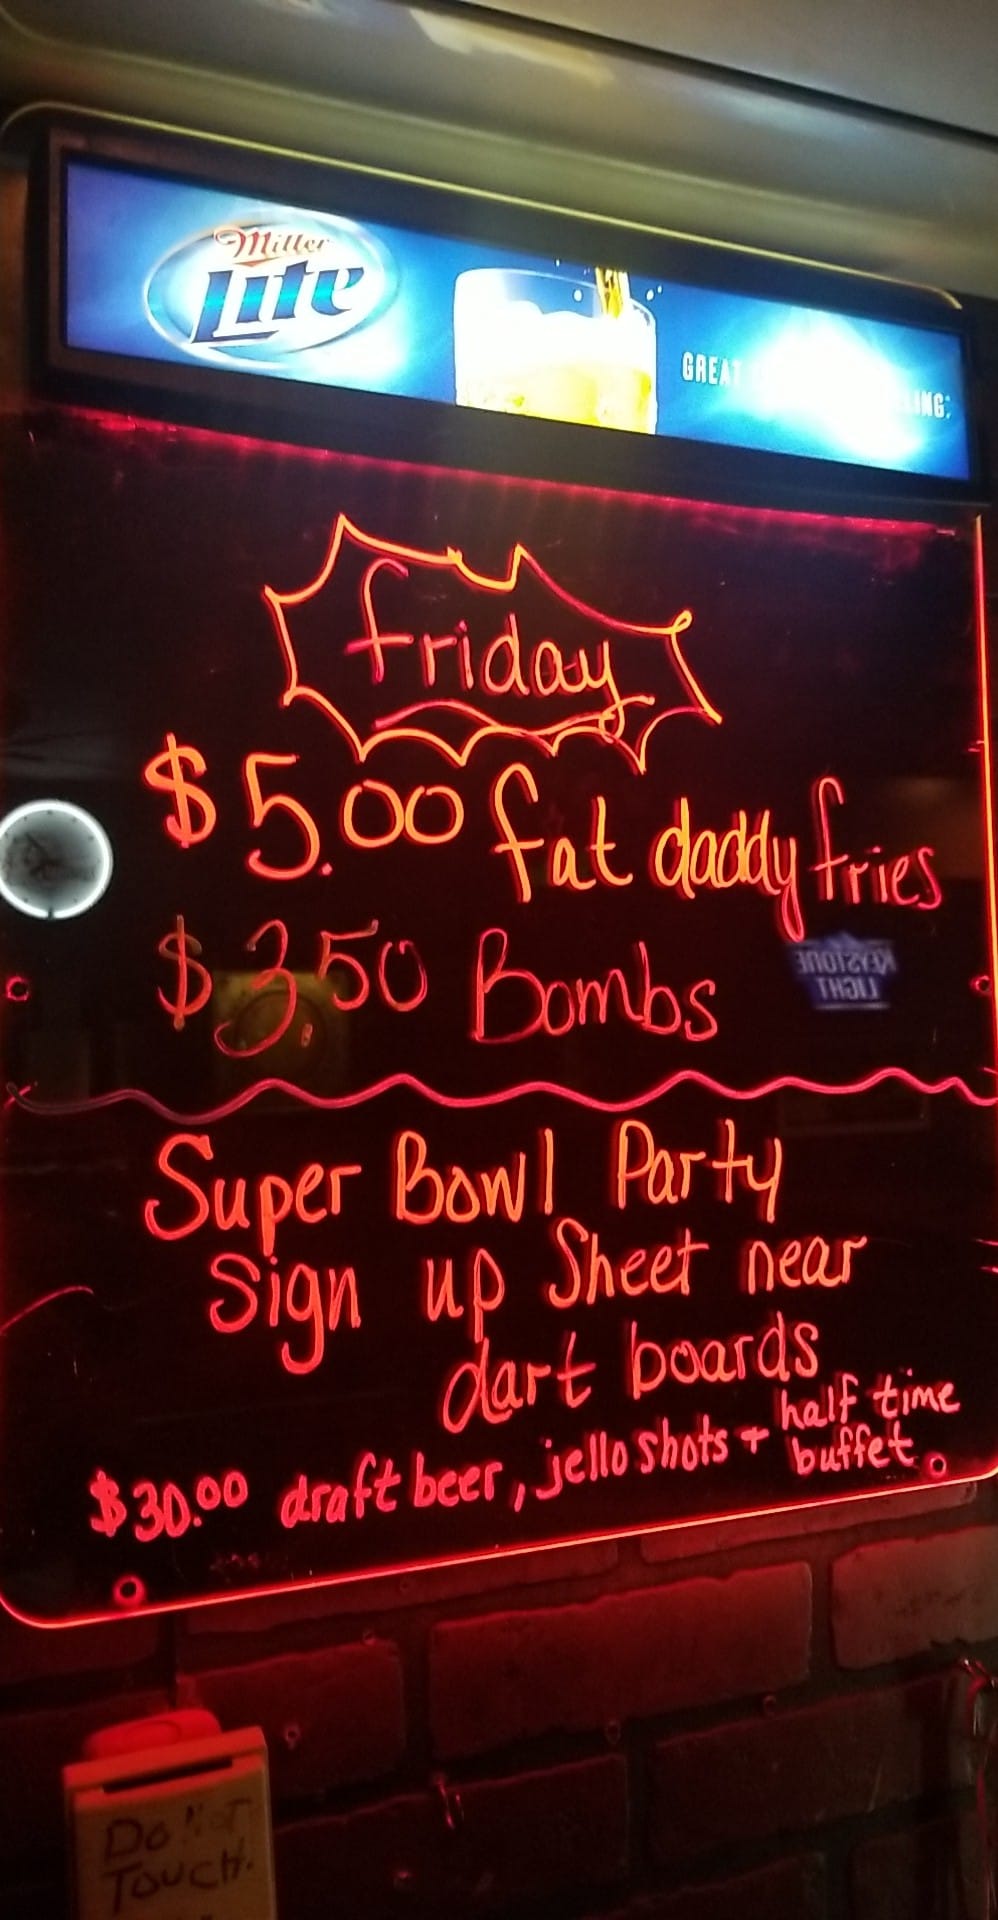 Miller
Lite
GREAT
friday
$5.00 fat daddy fries
$3.50 Bombs
KEYSTONE
LIGHT
Super Bowl Party
Sign up Sheet near
dart boards
$30.00 draft beer, jello shots + half time
buffet
Do Not
Touch.